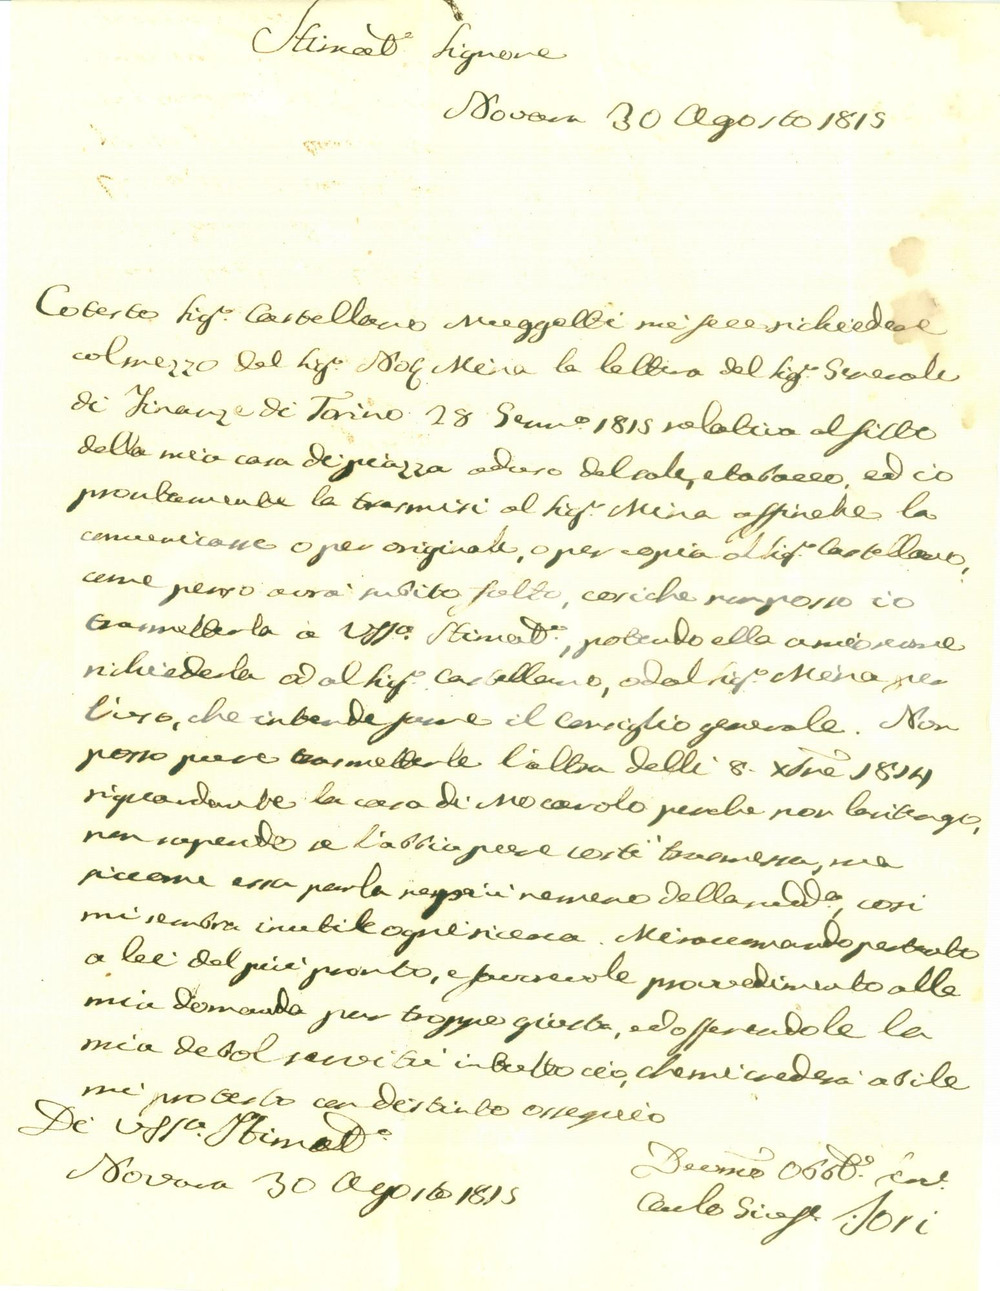 Stimat.e Signore
Novara 30 Agosto 1815
Cotesto Sig.r Castellano Muggetti mi fece richiedere
col mezzo del Sig.r Mina la lettera del Sig.r Generale
di Finanze di Torino 28 Genn.o 1815 relativa al fitto
della mia casa di piazza ad uso del sale, e tabacco, ed io
prontamente la trasmisi al Sig.r Mina affinche la
comunicasse o per originale, o per copia al Sig.r Castellano,
come penso avrà subito fatto, cosiche non posso io
trasmetterla a VSSa. Stimat.e, potendo ella a mio nome
richiederla od al Sig.r Castellano, od al Sig.r Mina per
l'uso, che intende farne il Consiglio generale. Non
posso pure trasmetterle l'altra delli 8. Xbre 1814
riguardante la casa di Mocarolo perche non la ritengo,
non sapendo se l'abbia pure costì trasmessa, ma
siccome essa parla neppiù nemeno della sudda, così
mi sembra inutile ogni ricerca. Mi raccomando pertanto
a lei del più pronto, e favorevole provvedimento alla
mia domanda pur troppo giusta, ed offerendole la
mia debol servitù in tutto ciò, che mi crederà abile
mi protesto con distinto ossequio
Di VSSa. Stimat.e
Novara 30 Agosto 1815
Devmo Obbl.o
Carlo Gius.e Tori